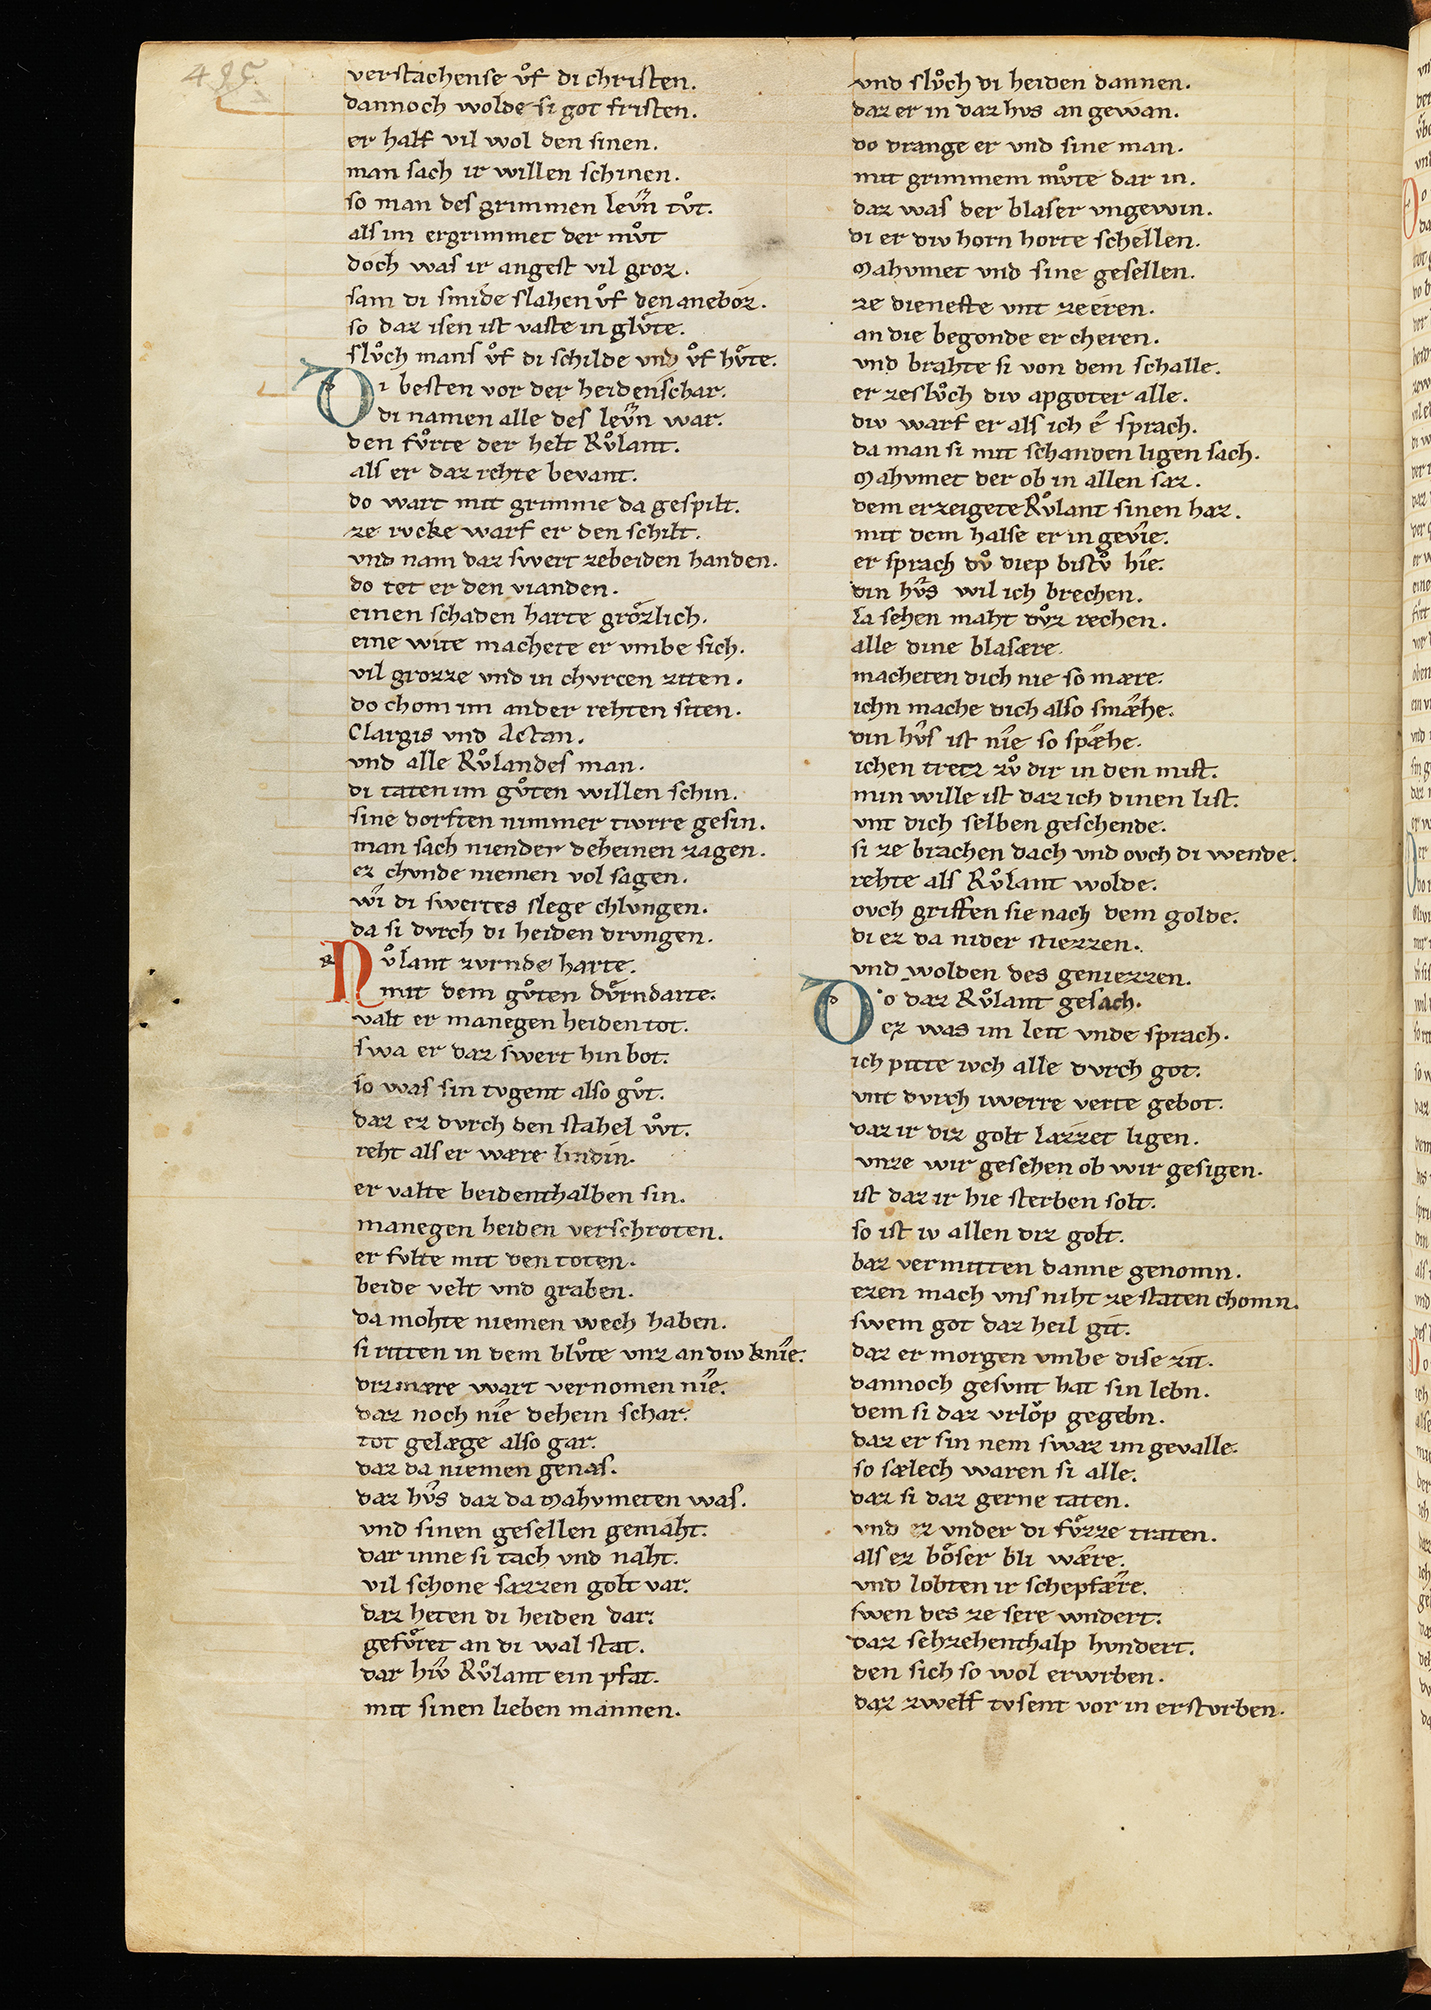 495
verstachense vͦf di christen.
dannoch wolde si got fristen.
er half vil wol den sinen.
man sach ir willen schinen.
so man des grimmen levn tvͦt.
als im ergrimmet der mvͦt
doch was ir angest vil groz.
sam di smide slahen vͦf den aneboz.
so daz isen ist vaste in glvͤte.
slvͦch mans vͦf di schilde vnd vͦf hvͤte.
Di besten vor der heidenschar.
di namen alle des levn war.
den fvͦrte der helt Rvͦlant.
als er daz rehte bevant.
do wart mit grimme da gespilt.
ze rvcke warf er den schilt.
vnd nam daz swert zebeiden handen.
do tet er den vianden.
einen schaden harte grôzlich.
eine wite machete er vmbe sich.
vil grozze vnd in chvrcen ziten.
do chom im ander rehten siten.
Clargis vnd Actan.
vnd alle Rvͦlandes man.
di taten im gvͦten willen schin.
sine dorften nimmer tiwrre gesin.
man sach niender deheinen zagen.
ez chvnde niemen vol sagen.
wî di swertes slege chlvngen.
da si dvrch di heiden drvngen.
Rvͦlant zvrnde harte.
mit dem gvͦten dvͤrndarte.
valt er manegen heiden tot.
swa er daz swert hin bot.
so was sin tvgent also gvͦt.
daz ez dvrch den stahel wͦt.
reht als er wære lindin.
er valte beidenthalben sin.
manegen heiden verschroten.
er fvlte mit den toten.
beide velt vnd graben.
da mohte niemen wech haben.
si riten in dem blvͦte vnz an div knîe.
diz mære wart vernomen nîe.
daz noch nîe dehein schar.
tot gelæge also gar.
daz da niemen genas.
daz hvͦs daz da Mahvmeten was.
vnd sinen gesellen gemaht.
dar inne si tach vnd naht.
vil schone sazzen golt var.
daz heten di heiden dar.
gefvͤret an di wal stat.
dar hîw Rvͦlant ein pfat.
mit sinen lieben mannen.
vnd slvͦch di heiden dannen.
daz er in daz hvs an gewan.
do drange er vnd sine man.
mit grimmem mvͦte dar in.
daz was der blaser vngewin.
di er div horn horte schellen.
Mahvmet vnd sine gesellen.
ze dienefte vnt ze eren.
an die begonde er cheren.
vnd brahte si von dem schalle.
er zeslvͦch div apgoter alle.
div warf er als ich ê sprach.
da man si mit schanden ligen sach.
Mahvmet der ob in allen saz.
dem erzeigete Rvͦlant sinen haz.
mit dem halse er in gevîe.
er sprach dvͦ diep bistvͦ hîe.
din hvͦs wil ich brechen.
la sehen maht dvͦz rechen.
alle dine blasære.
macheten dich nie so mære.
ichn mache dich also smæhe.
din hvͦs ist nîe so spæhe.
ichen tretz zvͦ dir in den mist.
min wille ist daz ich dinen list.
vnt dich selben geschende.
si ze brachen dach vnd ovch di wende.
rehte als Rvͦlant wolde.
ovch griffen sie nach dem golde.
di ez da nider stiezzen.
vnd wolden des geniezzen.
Do daz Rvͦlant gesach.
ez was im leit vnde sprach.
ich pitte ivch alle dvrch got.
vnt dvrch iwerre verte gebot.
daz ir diz golt lazzet ligen.
vnze wir gesehen ob wir gesigen.
ist daz ir hie sterben solt.
so ist iv allen diz golt.
baz vermitten danne genomn.
ezen mach vns niht ze staten chomn.
swem got daz heil git.
daz er morgen vmbe dise zit.
dannoch gesvnt hat sin lebn.
dem si daz vrlôp gegebn.
daz er sin nem swaz im gevalle.
so sælech waren si alle.
daz si daz gerne taten.
vnd ez vnder di fvͤzze traten.
als ez bôser bli wære.
vnd lobten ir schepfære.
swen des ze sere wndert.
daz sehzehenthalp hvndert.
den sich so wol erwrben.
daz zwelf tvsent vor in erstvrben.